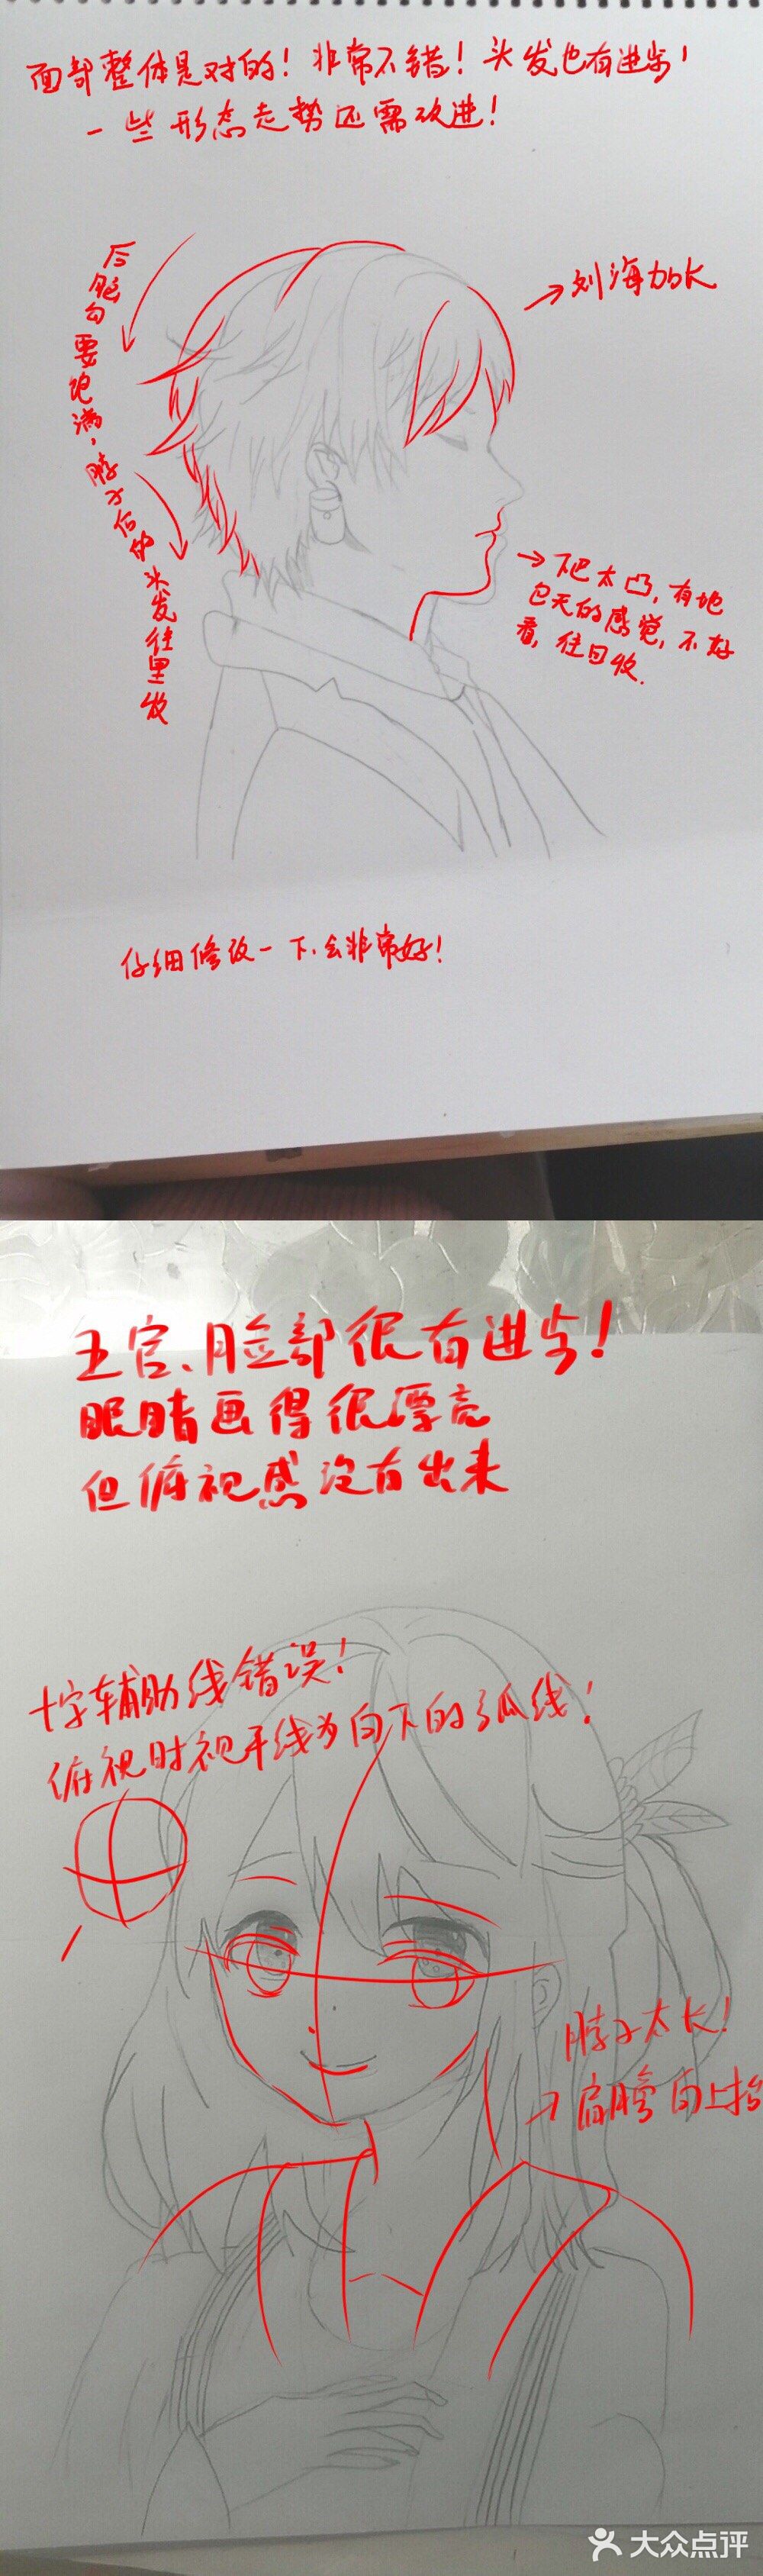 面部整体是对的！非常不错！头发也有进步！
一些形态走势还需改进！
刘海加长
后脑勺要饱满，脖子后的头发往里收
下巴太凸，有地
包天的感觉，不好
看，往回收.
仔细修改一下.会非常好！
五官、脸部很有进步！
眼睛画得很漂亮
但俯视感没有出来
十字辅助线错误！
俯视时视平线为向下的弧线！
脖子太长！
→肩膀向上抬
大众点评